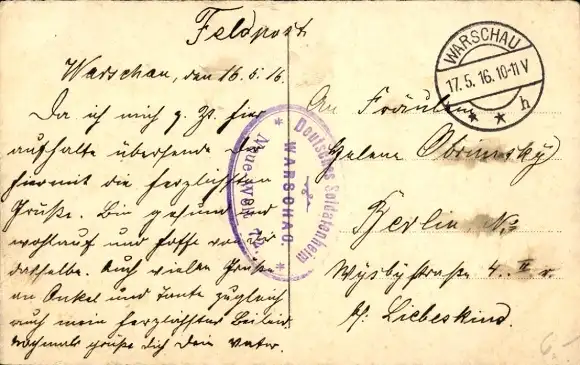 Feldpost
Warschau, den 16.5.16
Da ich mich z. Zt. hier
aufhalte übersende Dir
hiermit die herzlichsten
Grüße. Bin gesund und
wohlauf und hoffe von Dir
dasselbe. Auch vielen Grüße
an Onkel und Tante zugleich
auch mein herzlichster Beileid.
Nochmals grüßt dich Dein Vater.
Deutsches Soldatenheim
* WARSCHAU *
Neue Welt
WARSCHAU
17.5.16.10-11V
* * h
An Fräulein
Helene Obrimsky
Berlin N.
Wysbystraße 4. II r.
b/ Liebeskind.
6.-